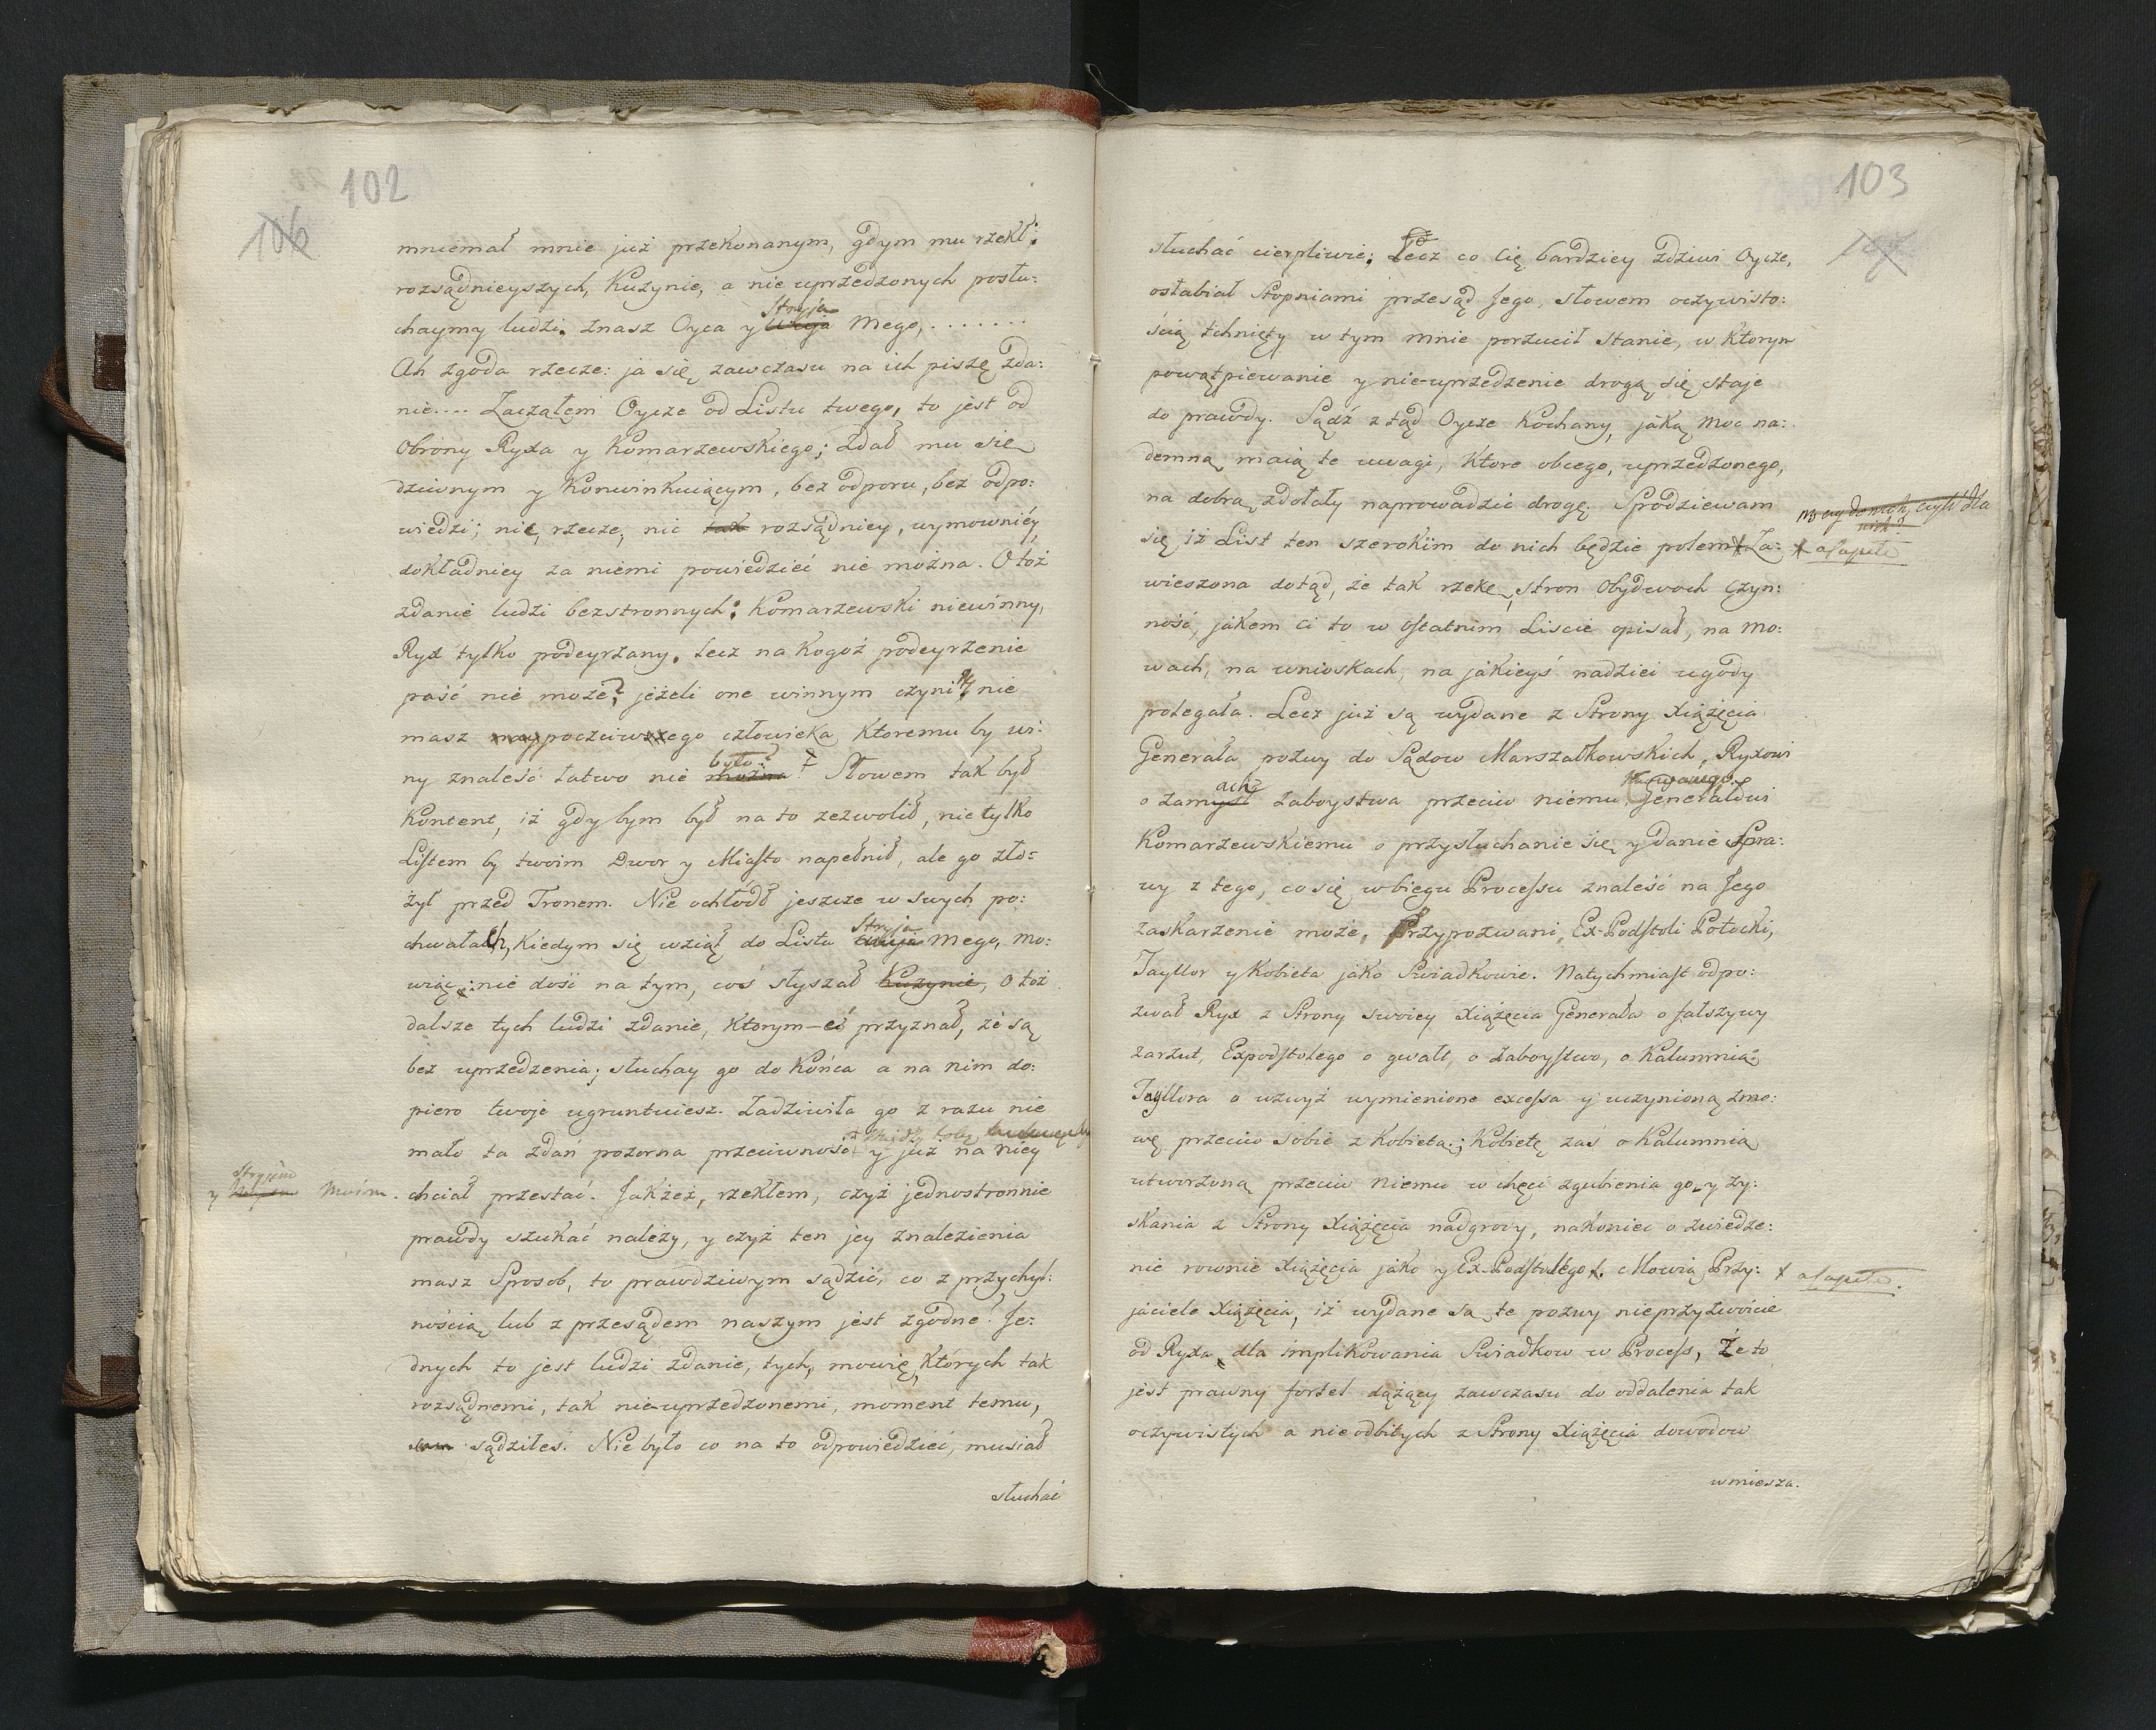 102
106
mniemał mnie już przekonanym, gdym mu rzekł:
rozsądnieyszych, Kuzynie, a nie uprzedzonych posłu:
chaymy ludzi. znasz Oyca y Stryja wuja mego, . . . . . . .
Ah zgoda rzecze: ja się zawczasu na ich piszę zda:
nie.... Zacząłem Oycze od Listu twego, to jest od
Obrony Ryxa y Komarzewskiego; zdał mu się
dziwnym y Konwinkuiącym, bez odporu, bez odpo:
wiedzi; nic, rzecze, nic tak rozsądniey, wymowniéy,
dokładniey za niemi powiedzieć nie można. Otoż
zdanie ludzi bezstronnych: Komarzewski niewinny,
Ryx tylko podeyrzany. Lecz na Kogoż podeyrzenie
paść nie może? jeżeli one winnym czyni? nie
masz naypoczciwszego człowieka Ktoremu by wi:
ny znaleść łatwo nie było? można? Słowem tak był
Kontent, iż gdy bym był na to zezwolił, nie tylko
Listem by twoim Dwor y Miasto napełnił, ale go zło:
żył przed Tronem. Nie ochłódł jeszcze w swych po:
chwałach, Kiedym się wziął do Listu Stryja wuja mego, mo:
wiąc: nie dość na tym, coś słyszał Kuzynie, otoż
dalsze tych ludzi zdanie, Ktorym-eś przyznał, że są
bez uprzedzenia; słuchay go do Końca a na nim do:
piero twoje ugruntuiesz. Zadziwiła go z razu nie
mało ta zdań pozorna przeciwność + między tobą y już na niéy
y stryjem moim.
chciał przestać. Jakżeż, rzekłem, czyż jednostronnie
prawdy szukać należy, y czyż ten jey znalezienia
masz Sposob, to prawdziwym sądzić, co z przychyl:
nością lub z przesądem naszym jest zgodne? Je:
dnych to jest ludzi zdanie, tych, mowię, których tak
rozsądnemi, tak nie-uprzedzonemi, moment temu,
sądziłeś. Nie było co na to odpowiedzieć, musiał
słuchać
103
107
słuchać cierpliwie; Lecz co Cię bardziey zdziwi Oycze,
osłabiał Stopniami przesąd Jego, słowem oczywisto:
ścią tchnięty w tym mnie porzucił Stanie, w Ktorym
powątpiewanie y nie-uprzedzenie drogą się staje
do prawdy. Sądź ztąd Oycze Kochany, jaką moc na:
demną maią te uwagi, Ktore obcego, uprzedzonego,
na dobrą zdołały naprowadzić drogę. Spodziewam
NB czy do nich, czyli dla nich?
się, iż List ten szerokim do nich będzie polem + Za:
+ a capite
wieszona dotąd, że tak rzekę, stron Obydwoch Czyn:
ność, jakem Ci to w ostatnim Liscie opisał, na mo:
wach, na wnioskach, na jakieyś nadziei ugody
polegała. Lecz już są wydane z Strony Xiążęcia
Generała pozwy do Sądow Marszałkowskich, Ryxowi
o zamach zamysł Zaboystwa przeciw niemu, Generałowi
Komarzewskiemu o przysłuchanie się y danie Spra:
wy z tego, co się w biegu Processu znaleść na Jego
zaskarzenie może, Przypozwani, Ex-Podstoli Potocki,
Tayllor y Kobieta jako Swiadkowie. Natychmiast odpo:
zwał Ryx z Strony swoiey Xiążęcia Generała o fałszywy
zarzut, Expodstolego o gwałt, o Zaboystwo, o Kalumnią
Tayllora o wzwyż wymienione excessa y uczynioną zmo:
wę przeciw sobie z Kobietą; Kobietę zas o Kalumnią
utworzoną przeciw Niemu w chęci zgubienia go, y zy:
skania z Strony Xiążęcia nadgrody, nakoniec o zwiedze:
nie rownie Xiążęcia jako y Ex-Podstolego +. Mowią Przy:
+ a capite.
jaciele Xiążęcia, iż wydane są te pozwy nieprzyzwoicie
od Ryxa, dla implikowania Swiadkow w Process, Że to
jest prawny fortel dążący zawczasu do oddalenia tak
oczywistych a nieodbitych z Strony Xiążęcia dowodow
wmiesza.